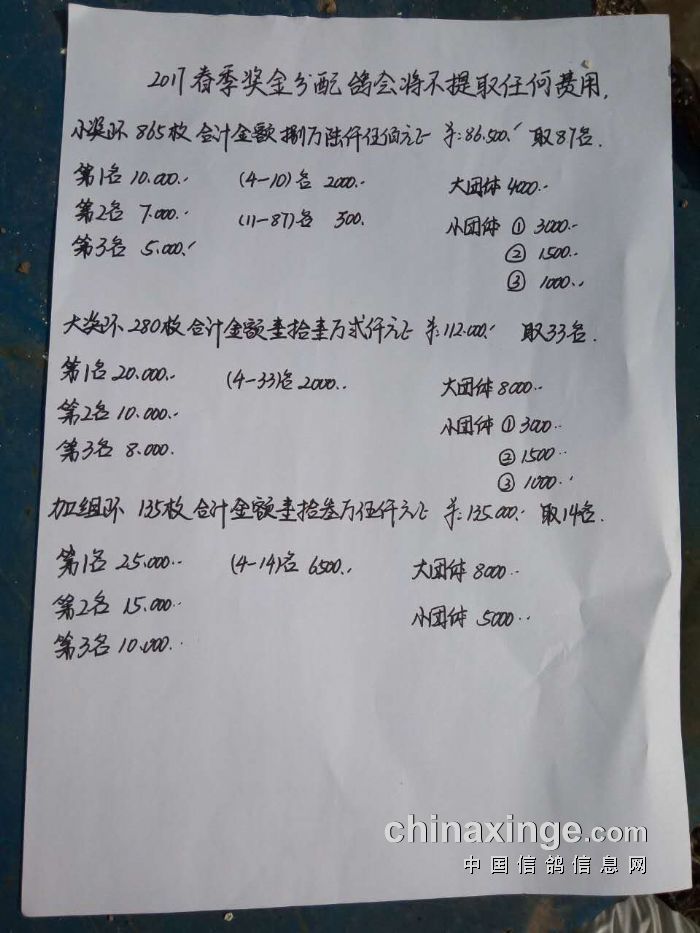 2017春季奖金分配 鸽会将不提取任何费用.
小奖环 865枚 合计金额 捌万陆仟伍佰元正 羊:86.500.- 取87名.
第1名 10.000.- (4-10)名 2000.- 大团体 4000.-
第2名 7.000.- (11-87)名 500. 小团体 ① 3000.-
第3名 5.000.- ② 1500.-
③ 1000.-
大奖环 280枚 合计金额壹拾壹万贰仟元正 羊:112.000.- 取33名.
第1名 20.000.- (4-33)名 2000.. 大团体 8000.-
第2名 10.000.- 小团体 ① 3000.-
第3名 8.000. ② 1500.-
③ 1000.-
加组环 135枚 合计金额壹拾叁万伍仟元正 羊:135.000.- 取14名.
第1名 25.000.- (4-14)名 6500.. 大团体 8000.-
第2名 15.000.- 小团体 5000.-
第3名 10.000.-
chinaxinge.com
中国信鸽信息网